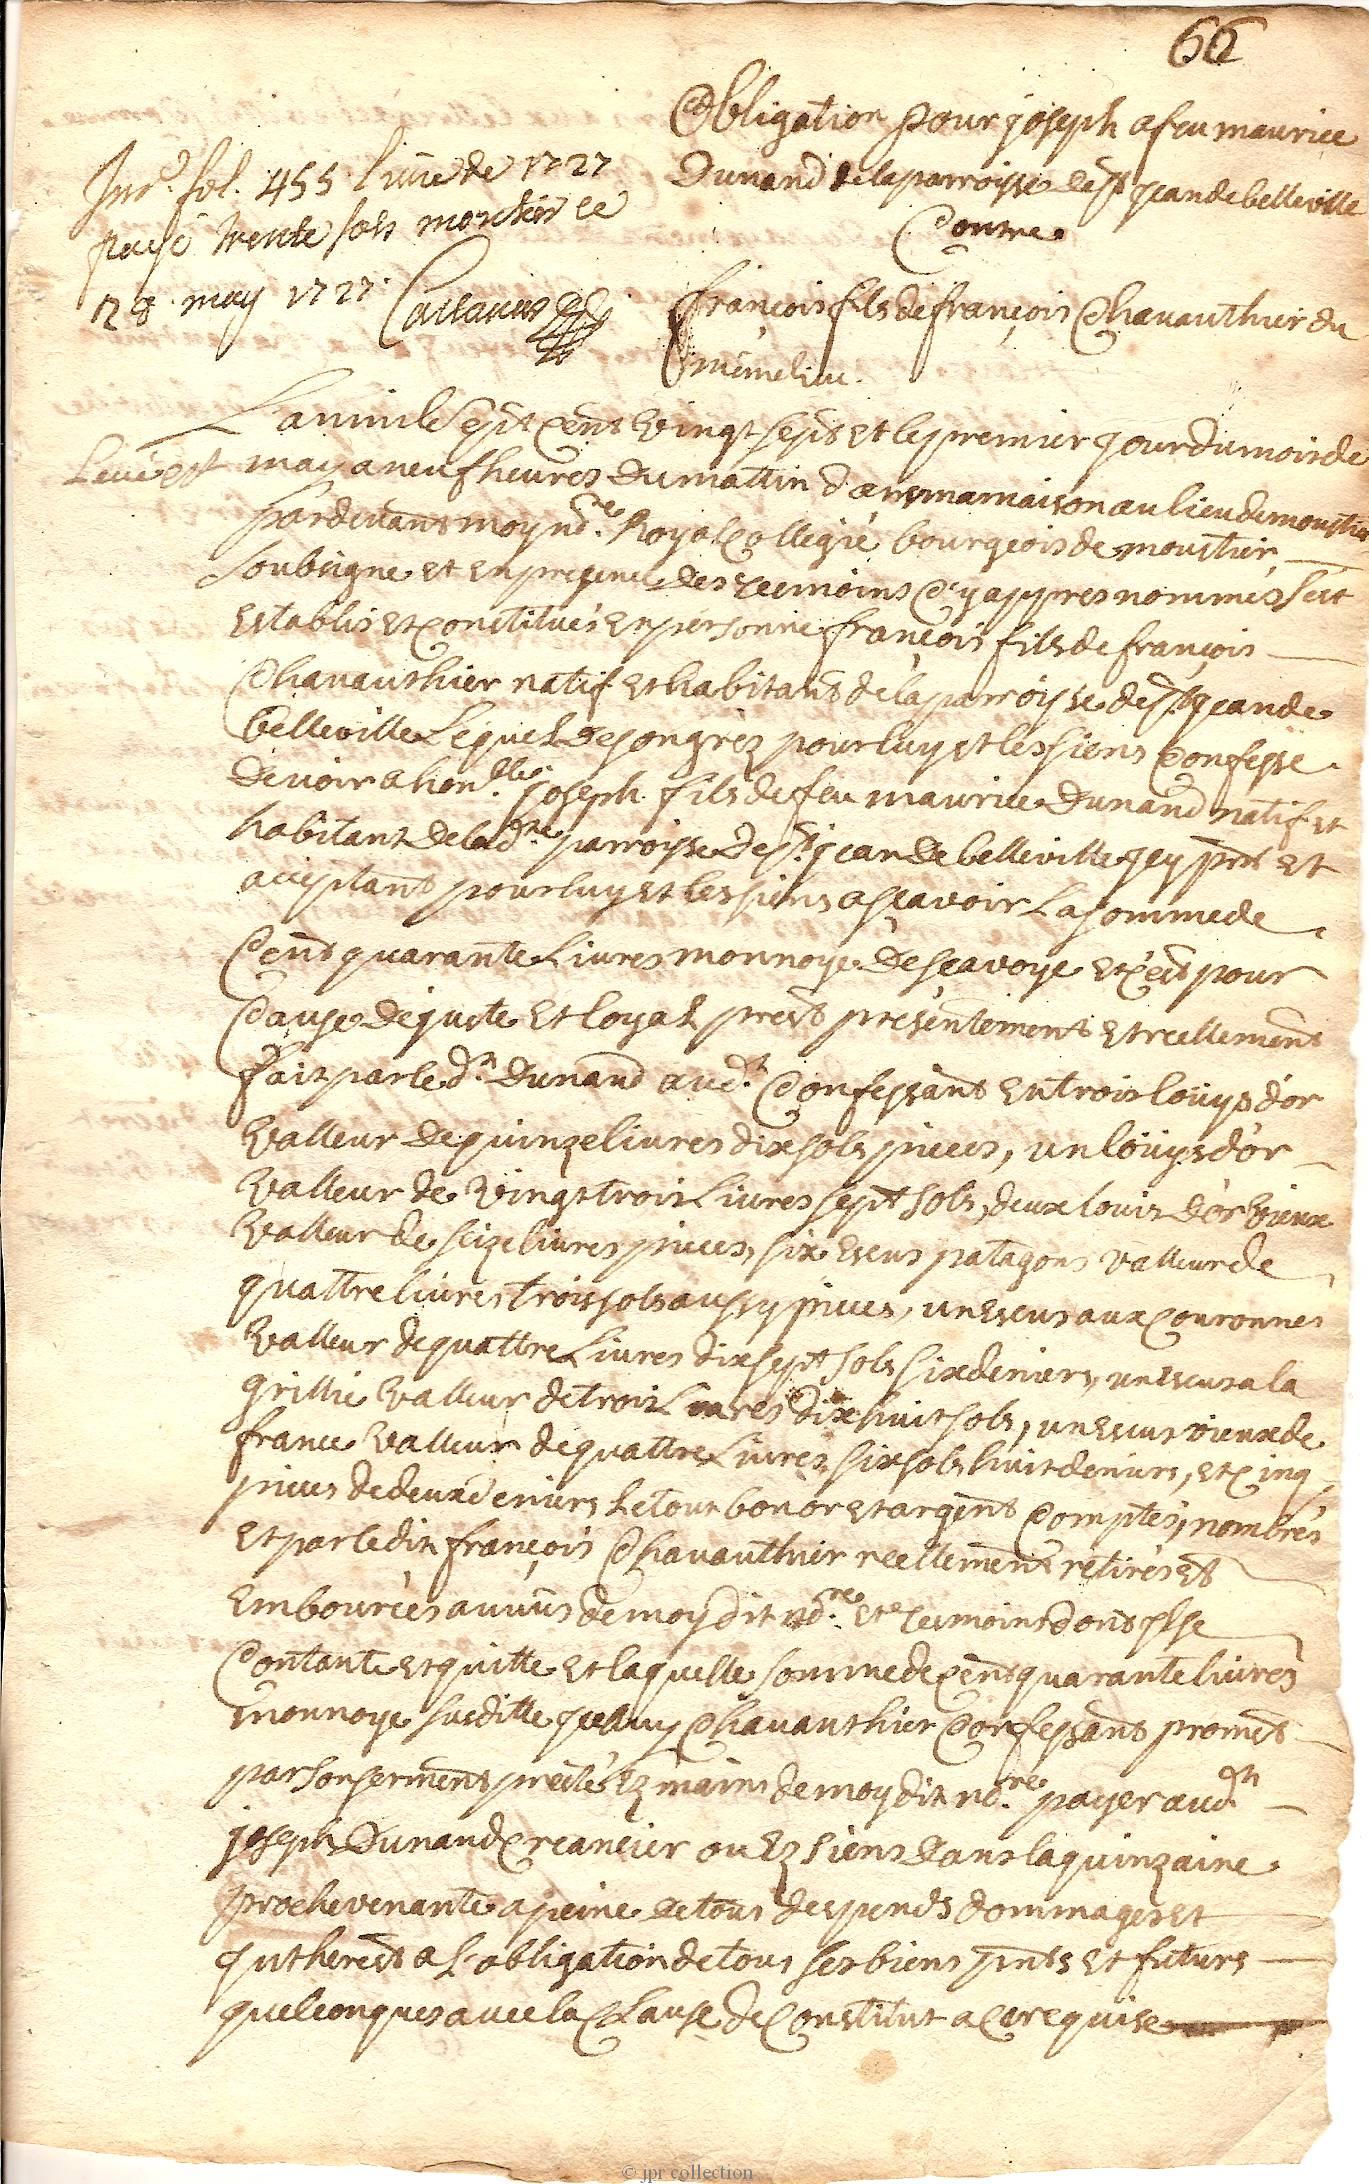 66
Obligation pour joseph a feu maurice
Dunand de la parroisse de st jean de belleville
Contre
françois fils de françois Chauauthier du
même lieu.
Ins.é fol. 455 liure de 1727
payé trente sols moustier ce
28 may 1727
Leué est
L'an mil sept cent vingt sept et le premier jour du mois de
may a neuf heures du mattin dans ma maison au lieu de moustier
pardeuant moy no.re Royal Collegié bourgeois de moustier
soubsigne et en presence des tesmoins cy appres nommés s'est
establis et constitué en personne françois fils de françois
Chauauthier natif et habitant de la parroisse de st jean de
belleville Lequel de son grez pour luy et les siens confesse
Devoir a hon.ble joseph fils de feu maurice Dunand natif et
habitant de lad.te parroisse de st jean de belleville jcy pñt et
acceptant pour luy et les siens a sçavoir La somme de
Cent quarante Liures monnoye de sçavoye et c'est pour
Cause de juste et loyal prest presentement et reellement
fait par le d.t Dunand aud.t Confessant en trois loüys d'or
valleur de quinze liures dix sols pieces, un loüys d'or
valleur de vingt trois Liures sept sols, deux louis d'or vieux
valleur de seize liures pieces, six escus patagons valleur de
quattre liures trois sols aussy pieces, un escus aux couronnes
valleur de quattre Liures dix sept sols six deniers, un escus a la
grillie valleur de trois Liures dix huit sols, un escus vieux de
france valleur de quattre Liures six sols huit deniers, et cinq
pieces de deux deniers le tout bon or et argent comptés, nombrés
et par ledit françois Chauauthier reellement retirés et
embourcés au vüs de moy dit no.re et tesmoins dont il se
contante et quitte et laquelle somme de cent quarante liures
monnoye susditte jceluy Chauauthier Confessant promet
par son serment presté ez mains de moy dit no.re payer aud.t
joseph Dunand creancier ou ez siens dans la quinzaine
prochevenante a peine de tous despends dommages et
jntherest a L'obligation de tous ses biens pñts et futurs
quelconques auec la Clause de Constitut a ce requise
© jpr collection